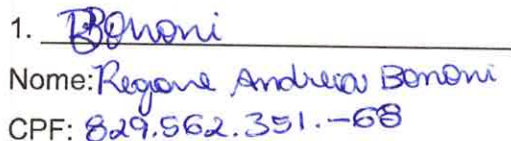 1. Bononi
Nome: Regiane Andreia Bononi
CPF: 829.562.351.-68